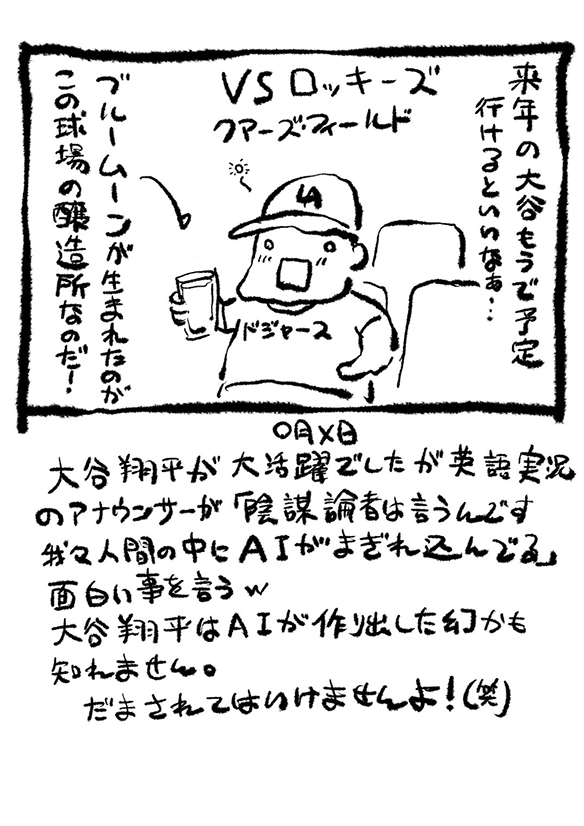 来年の大谷もうで予定
行けるといいなぁ…
VSロッキーズ
クアーズ・フィールド
ブルームーンが生まれたのが
この球場の醸造所なのだ！
LA
ドジャース
〇月×日
大谷翔平が大活躍でしたが英語実況
のアナウンサーが「陰謀論者は言うんです
我々人間の中にAIがまぎれ込んでる」
面白い事を言うw
大谷翔平はAIが作り出した幻かも
知れません。
だまされてはいけませんよ！(笑)